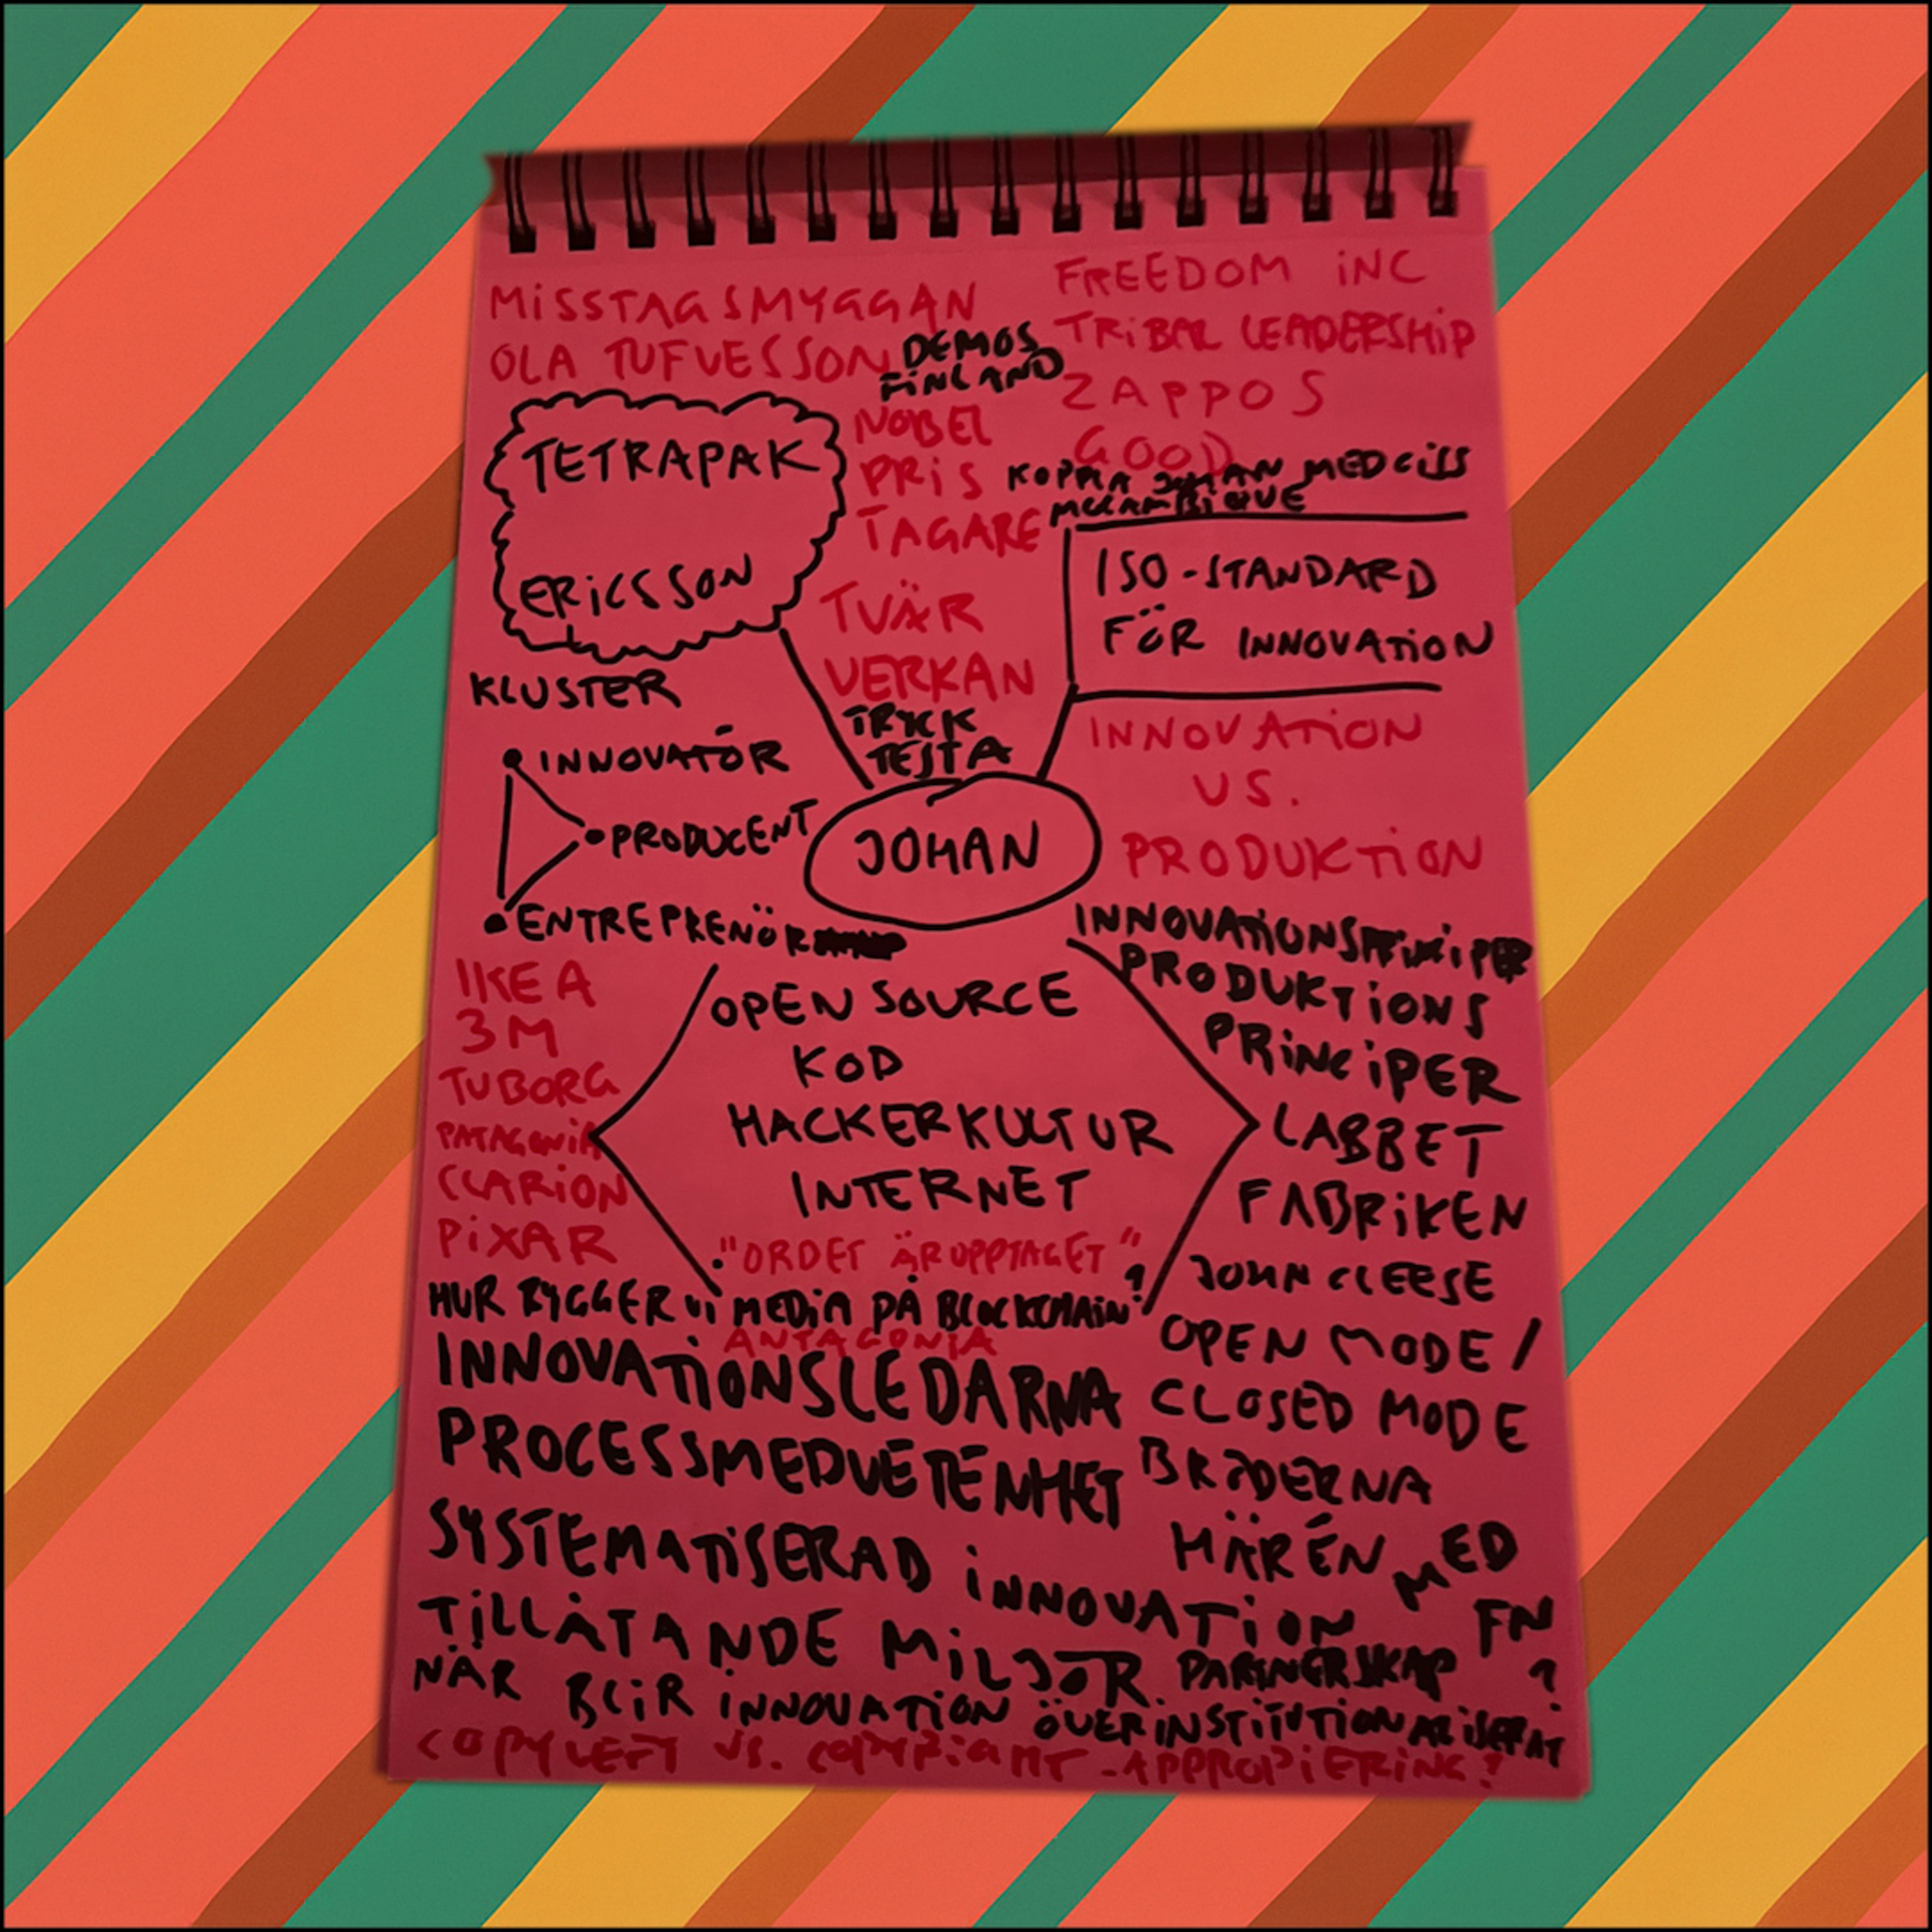 MISSTAGSMYGGAN
OLA TUFVESSON
DEMOS
FINLAND
FREEDOM INC
TRIBAL LEADERSHIP
ZAPPOS
GOOD
TETRAPAK
ERICSSON
NOBEL
PRIS
TAGARE
KOPPLA JOHAN MED CISS
MOCAMBIQUE
ISO-STANDARD
FÖR INNOVATION
TVÄR
VERKAN
TRYCK
TESTA
KLUSTER
INNOVATÖR
PRODUCENT
ENTREPRENÖR
JOHAN
INNOVATION
VS.
PRODUKTION
INNOVATIONSPRINCIPER
PRODUKTIONS
PRINCIPER
LABBET
FABRIKEN
IKEA
3M
TUBORG
PATAGONIA
CLARION
PIXAR
OPEN SOURCE
KOD
HACKERKULTUR
INTERNET
"ORDET ÄR UPPTAGET"
HUR BYGGER VI MEDIA PÅ BLOCKCHAIN?
ANTAGONIA
JOHN CLEESE
OPEN MODE /
CLOSED MODE
INNOVATIONSLEDARNA
PROCESSMEDVETENHET
BRÖDERNA
HÄRÉN MED
FN
SYSTEMATISERAD INNOVATION
TILLÅTANDE MILJÖR. PARTNERSKAP
NÄR BLIR INNOVATION ÖVERINSTITUTIONALISERAT?
COPYLEFT VS. COPYRIGHT - APPROPIERING?